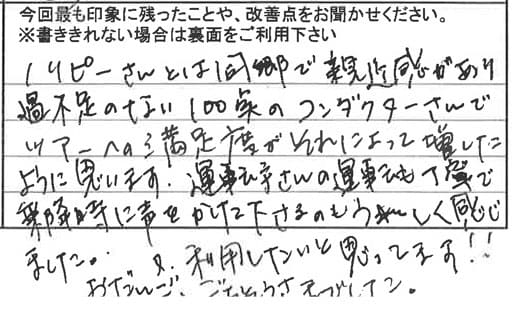 今回最も印象に残ったことや、改善点をお聞かせください。
※書ききれない場合は裏面をご利用下さい
さんとは同郷で親近感があり
過不足のない100点のコンダクターさんで
ツアーへの満足度がそれによって増した
ように思います。運転手さんの運転も丁寧で
乗降時に声をかけて下さるのもうれしく感じ
ました。 又、利用したいと思ってます!!
ごちそうさまでした。